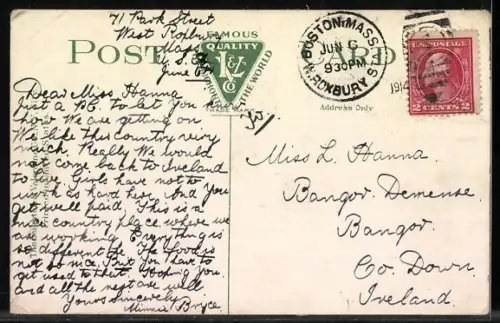 71 Park Street
West Roxbury
Mass
U.S.A
June 6
POST CARD
FAMOUS
QUALITY
THE WORLD
TRADE MARK
BOSTON, MASS.
JUN 6
9 30 PM
W. ROXBURY STA.
1914
2 CENTS 2
Address Only
Dear Miss Hanna
Just a P.C. to let you know
how We are getting on
We like this country very
much. Really We would
not come back to Ireland
to live. Girls have not to
work as hard here And you
get well paid. This is a
nice country place where we
are working Everything is
so different the The food is
not so nice. But you have to
get used to that. Hoping you
and all the rest are well
Yours Sincerely
Minnie Bryce.
Miss L. Hanna.
Bangor Demense
Bangor.
Co. Down.
Ireland.